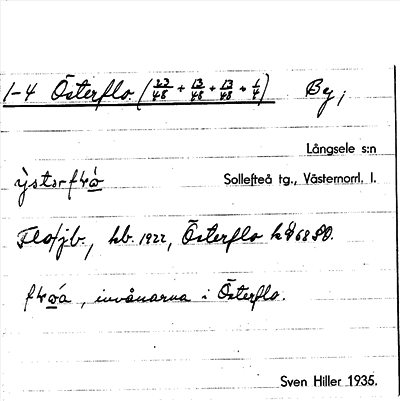 1-4 Österflo (23/48 + 13/48 + 13/48 + 1/4) By;
Långsele s:n
Sollefteå tg., Västernorrl. l.
Flo/jb., hb. 1922, Österflo
, invånarna i Österflo.
Sven Hiller 1935.